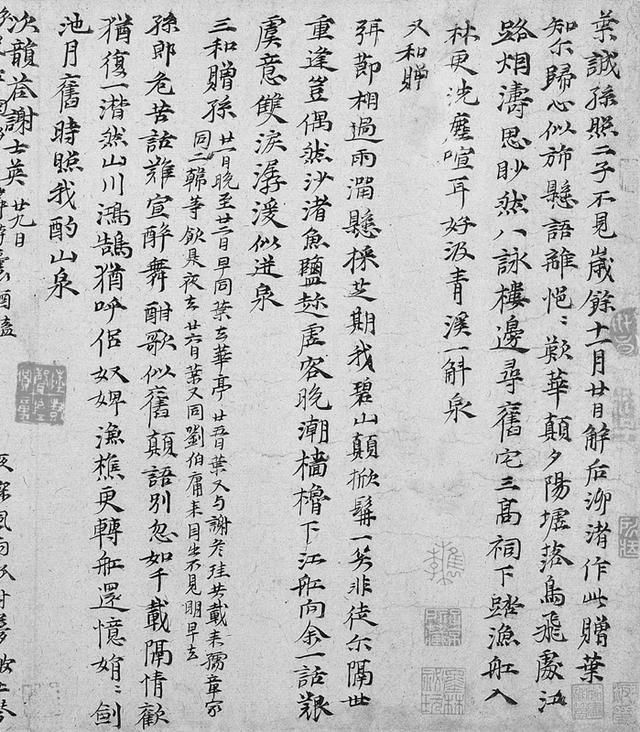 葉誠孫照二子不見歲餘十一月廿日解后泖渚作此贈葉
知尔歸心似旆懸語離悒〻歎華顛夕陽墟落鳥飛處江
路烟濤思眇然八詠樓邊尋舊宅三高祠下踏漁舡入
林更洗塵喧耳好汲青溪一斛泉
又和贈
弭節栩過雨澗懸採芝期我碧山顛掀髯一笑非徒尔隔世
重逢豈偶然沙渚魚鹽趂虛客晚潮檣櫓下江舡向余一話艱
虞意雙淚潺湲似迸泉
三和贈孫
廿一日晚至廿二日早同葉去華亭廿五日葉又与謝參珪共載來孺章家
同二韓等飲是夜去廿六日葉又同劉伯庸來目出不見明早去
孫郎危苦話難宣醉舞酣歌似舊顛語別忽如千載隔情歡
猶復一潸然山川鴻鵠猶呼侶奴婢漁樵更轉舡還憶娟〻劍
池月舊時照我酌山泉
次韻荅謝士英 廿九日